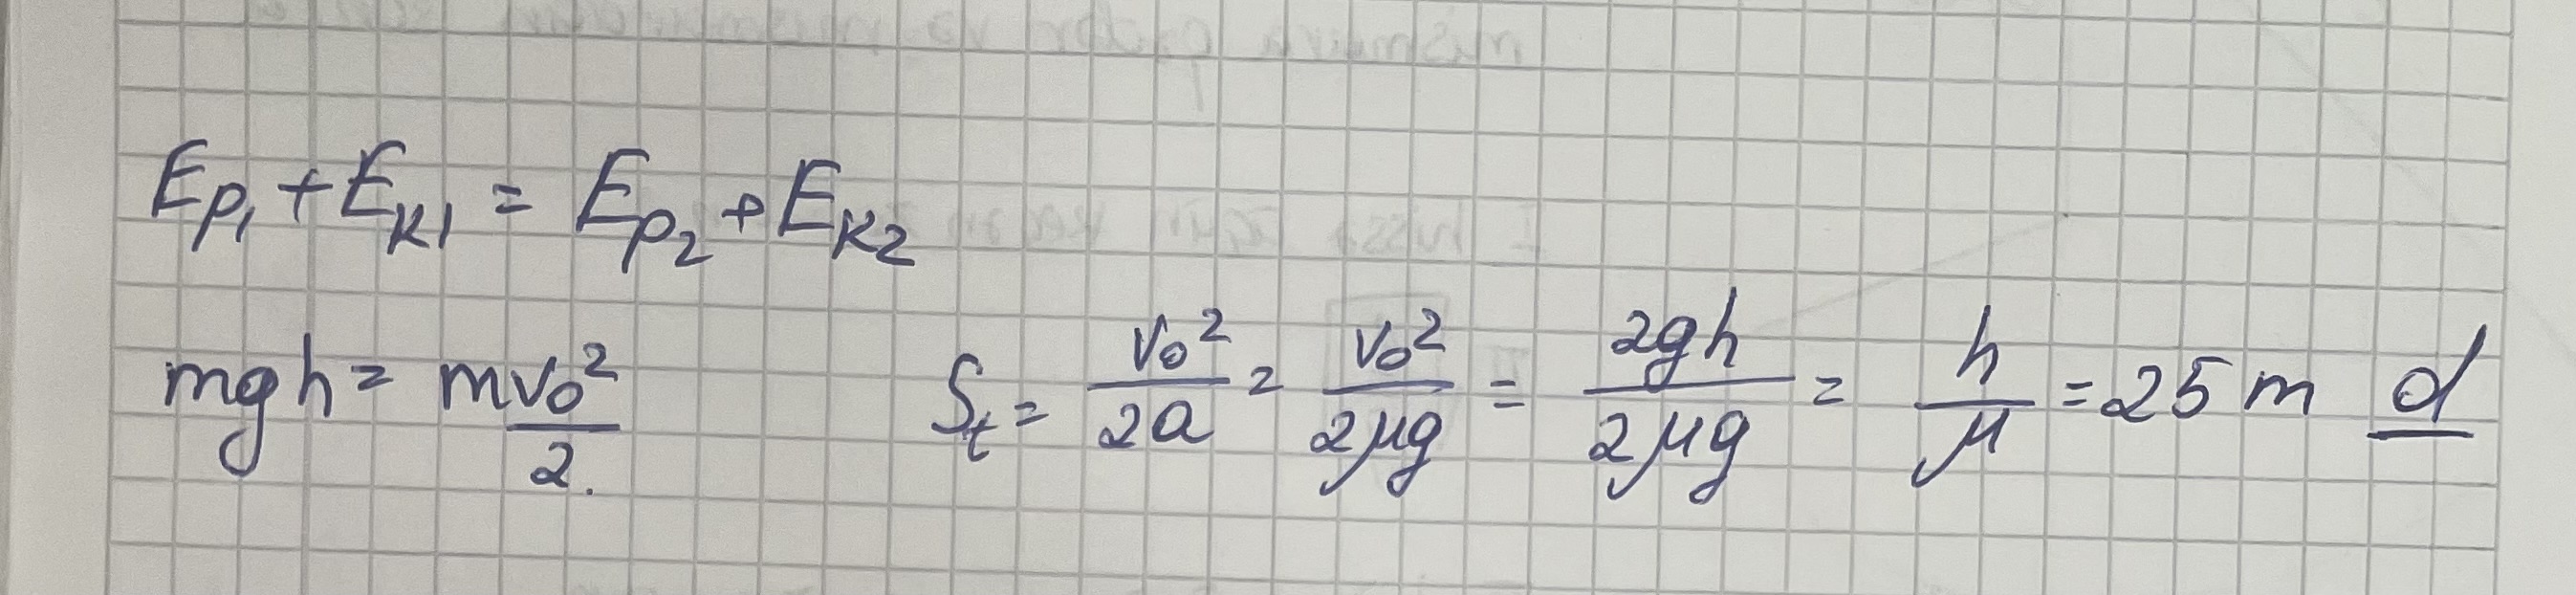 Ep₁ + Ek1 = Ep₂ + Ek2
mgh = mv₀²/2.
Sₜ = v₀²/2a = v₀²/2μg = 2gh/2μg = h/μ = 25 m d